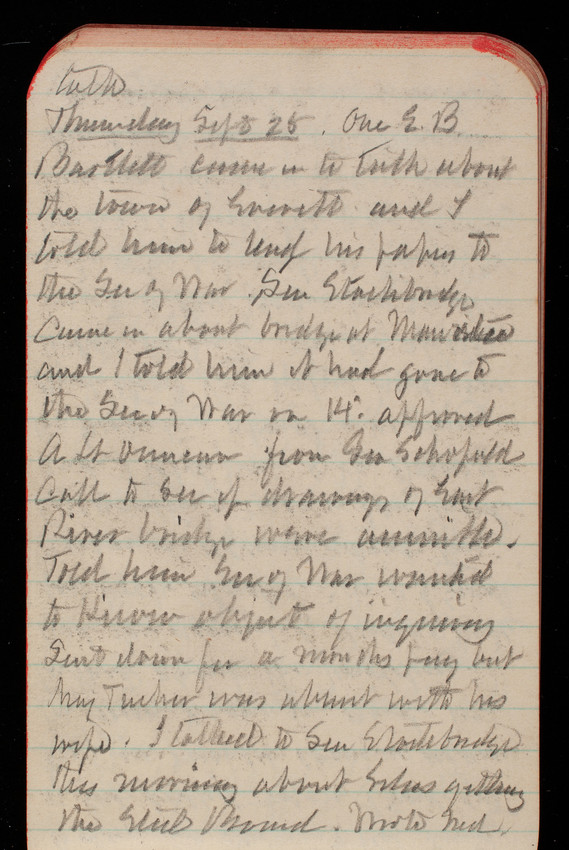 talk
Thursday Sept 25. One E. B.
Bartlett came in to talk about
the town of Everett and I
told him to send his papers to
the Sec of War. Sen Stockbridge
came in about bridge at Manistee
and I told him it had gone to
the Sec of War on 14". approved
A Lt from Gen Schofield
Call to see if drawings of East
River bridge were
Told him Sec of War wanted
to know object of inquiry
Sent down for a months pay but
Maj Tucker was absent with his
wife. I talked to Sen Stockbridge
this morning about getting
the Steel Board. Wrote Ned.